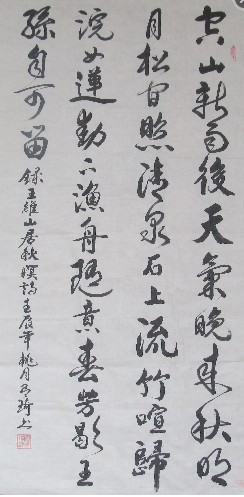 空山新雨後天氣晚来秋明
月松间照清泉石上流竹喧歸
浣女蓮動下漁舟随意春芳歇王
孫自可留
録王維山居秋暝詩壬辰年桃月